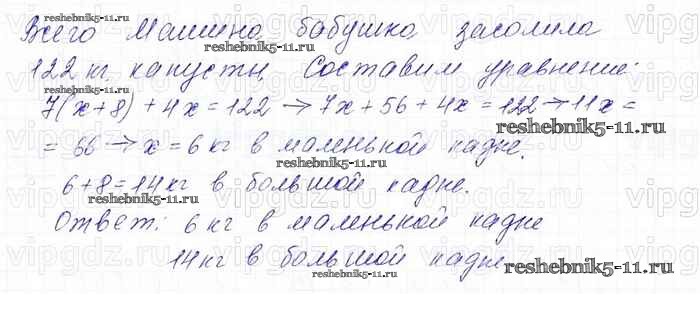 Всего Машина бабушка засолила
122 кг капусты Составим уравнение:
7(x+8) + 4x = 122 → 7x + 56 + 4x = 122 → 11x =
= 66 → x = 6 кг в маленькой кадке.
6 + 8 = 14 кг в большой кадке.
Ответ: 6 кг в маленькой кадке
14 кг в большой кадке
reshebnik5-11.ru
reshebnik5-11.ru
reshebnik5-11.ru
reshebnik5-11.ru
reshebnik5-11.ru
reshebnik5-11.ru
reshebnik5-11.ru
vipgdz.ru